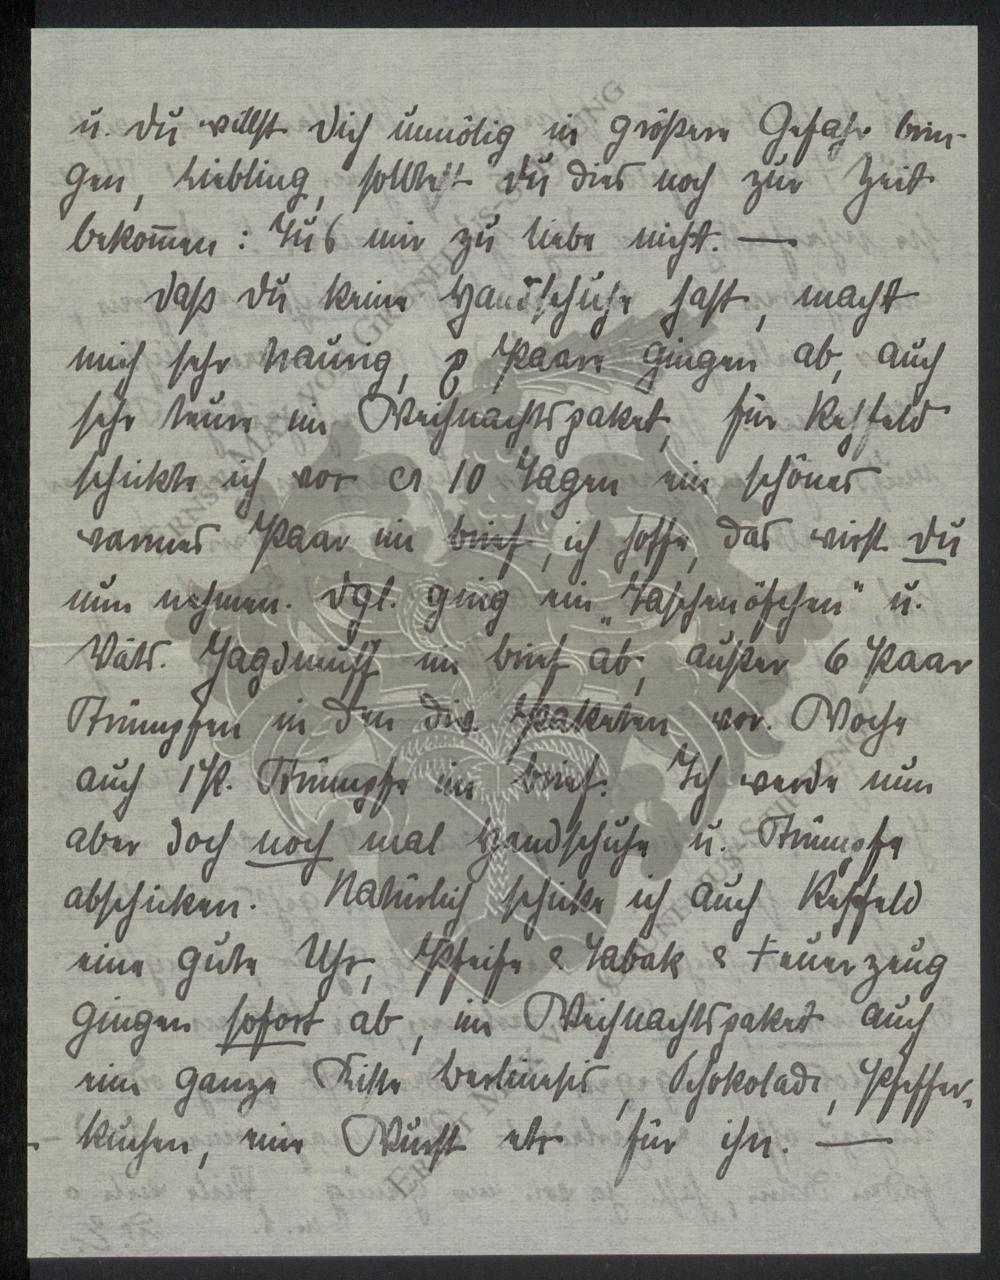 u. Du willst Dich unnötig in größere Gefahr brin-
gen, Liebling, solltest Du dies noch zur Zeit
bekom̄en: Tu's mir zu liebe nicht. —
Daß Du keine Handschuhe hast, macht
mich sehr traurig, 2 Paare gingen ab, auch
sehr teure im Weihnachtspaket, für Rehfeld
schickte ich vor ca 10 Tagen ein schönes
warmes Paar im Brief, ich hoffe, das wirst Du
nun nehmen. Dgl. ging ein "Taschenöfchen" u.
Vaters Jagdmuff im Brief ab, außer 6 Paar
Strümpfen in den div. Paketen vor. Woche
auch 1 P. Strümpfe im Brief. Ich werde nun
aber doch noch mal Handschuhe u. Strümpfe
abschicken. Natürlich schicke ich auch Rehfeld
eine gute Uhr, Pfeife & Tabak & Feuerzeug
gingen sofort ab, im Weihnachtspaket auch
eine ganze Kiste, Schokolade, Pfeffer-
kuchen, eine Wurst etc für ihn. —